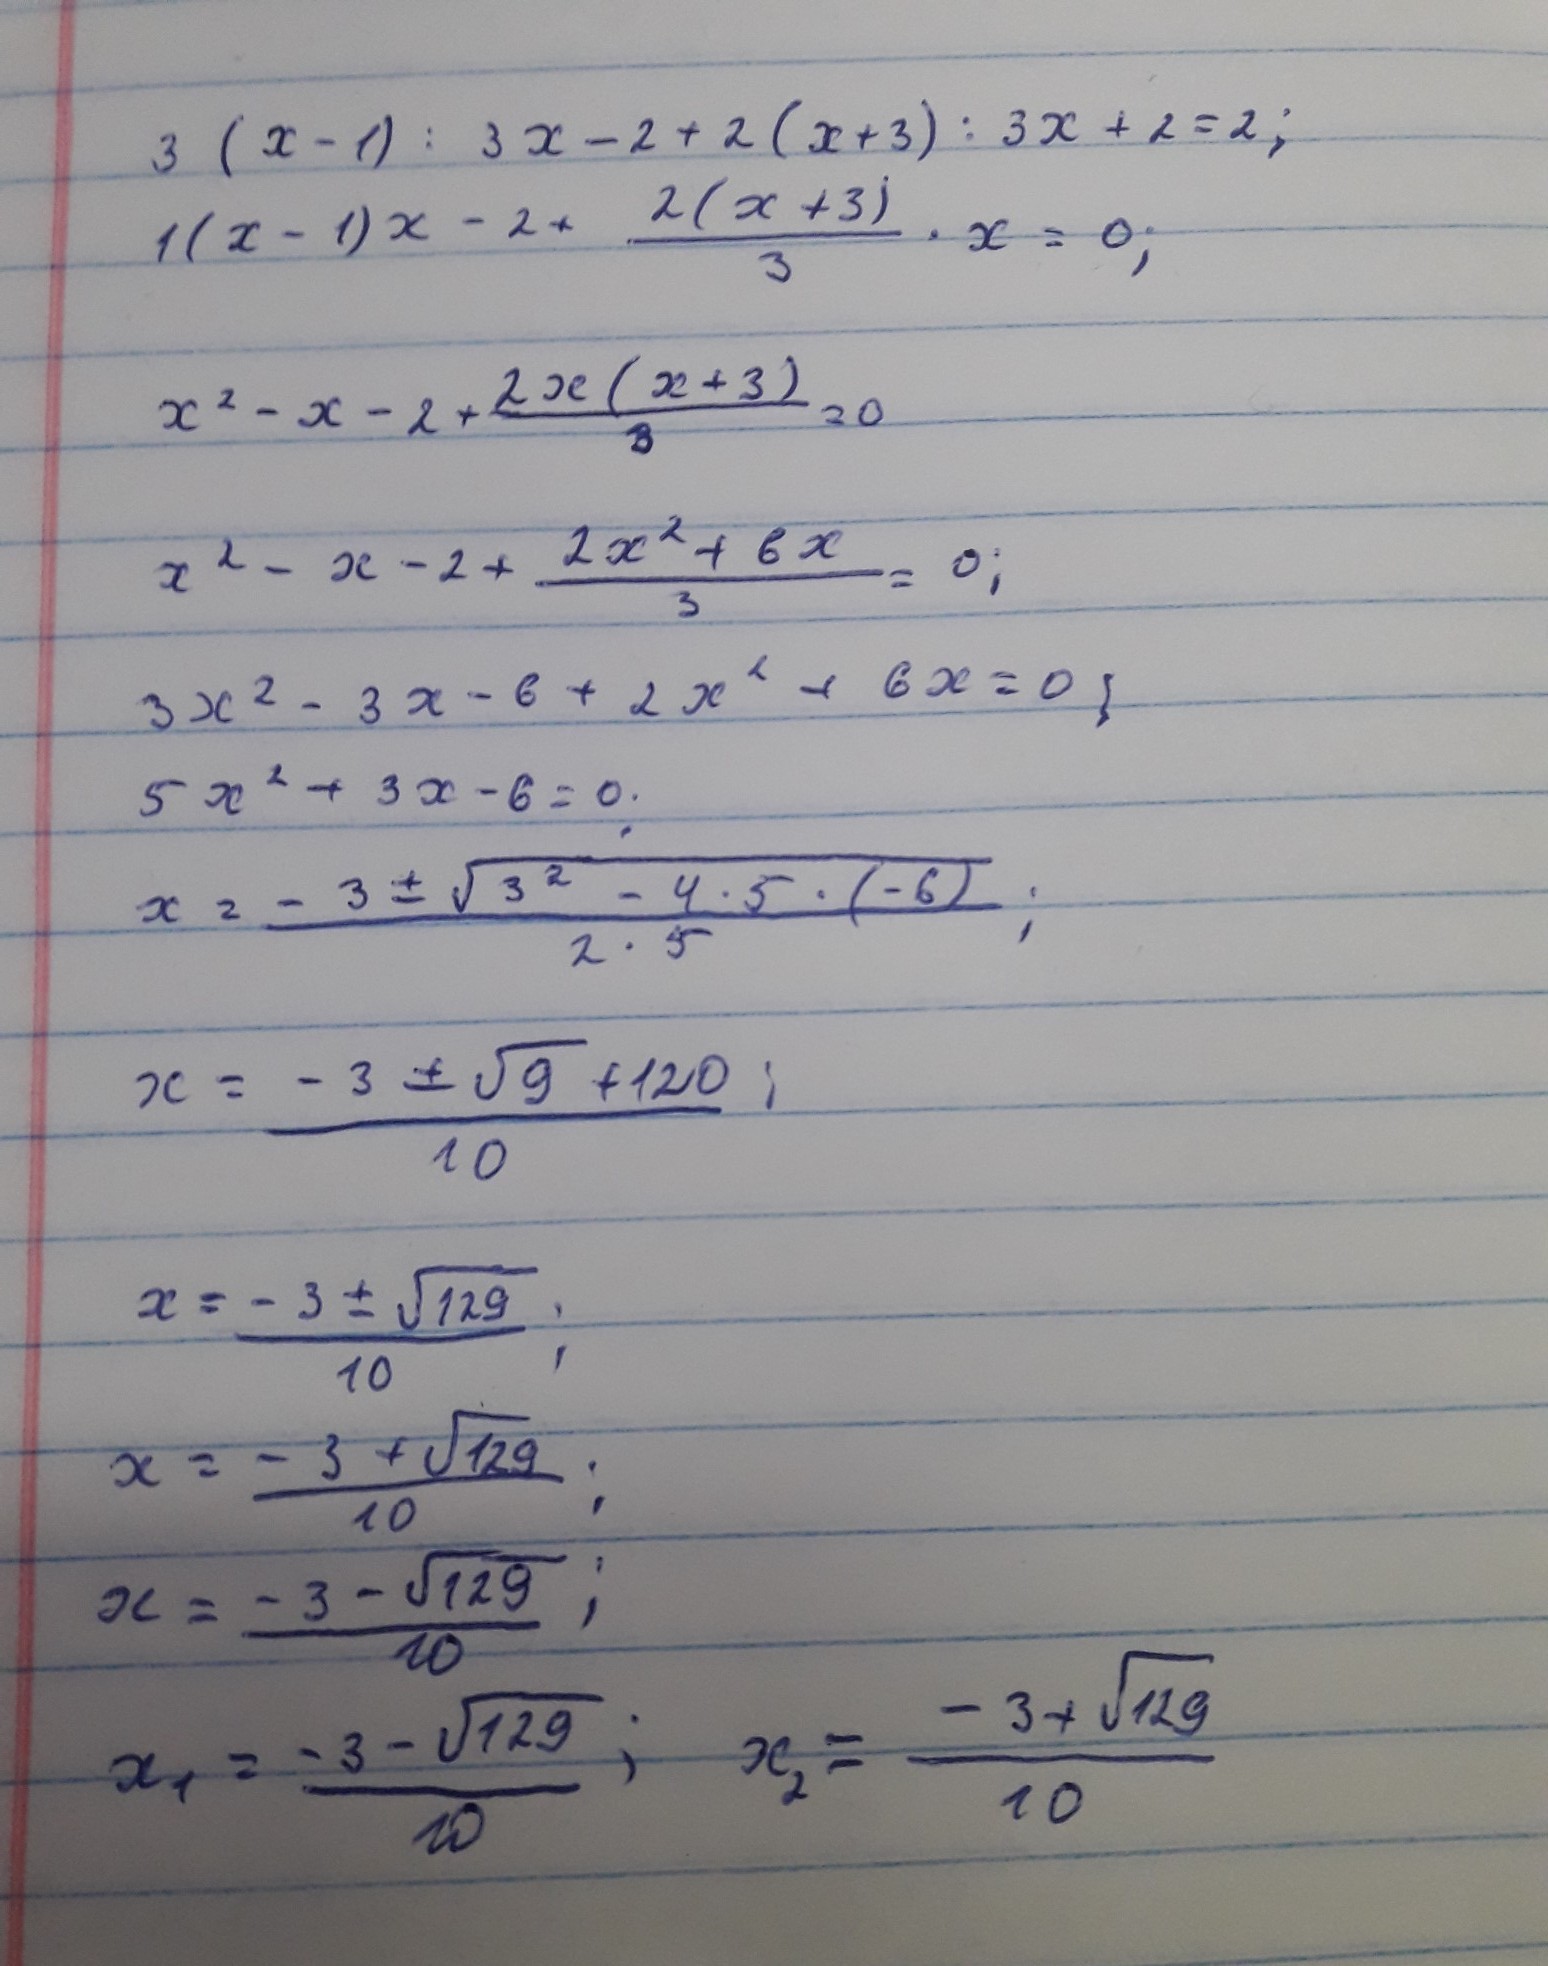 3 (x - 1) : 3x - 2 + 2 (x + 3) : 3x + 2 = 2;
1(x - 1)x - 2 + \frac{2(x + 3)}{3} · x = 0;
x² - x - 2 + \frac{2x(x + 3)}{3} = 0
x² - x - 2 + \frac{2x² + 6x}{3} = 0;
3x² - 3x - 6 + 2x² + 6x = 0;
5x² + 3x - 6 = 0;
x = \frac{-3 ± \sqrt{3² - 4 · 5 · (-6)}}{2 · 5};
x = \frac{-3 ± \sqrt{9} + 120}{10};
x = \frac{-3 ± \sqrt{129}}{10};
x = \frac{-3 + \sqrt{129}}{10};
x = \frac{-3 - \sqrt{129}}{10};
x₁ = \frac{-3 - \sqrt{129}}{10}; x₂ = \frac{-3 + \sqrt{129}}{10}